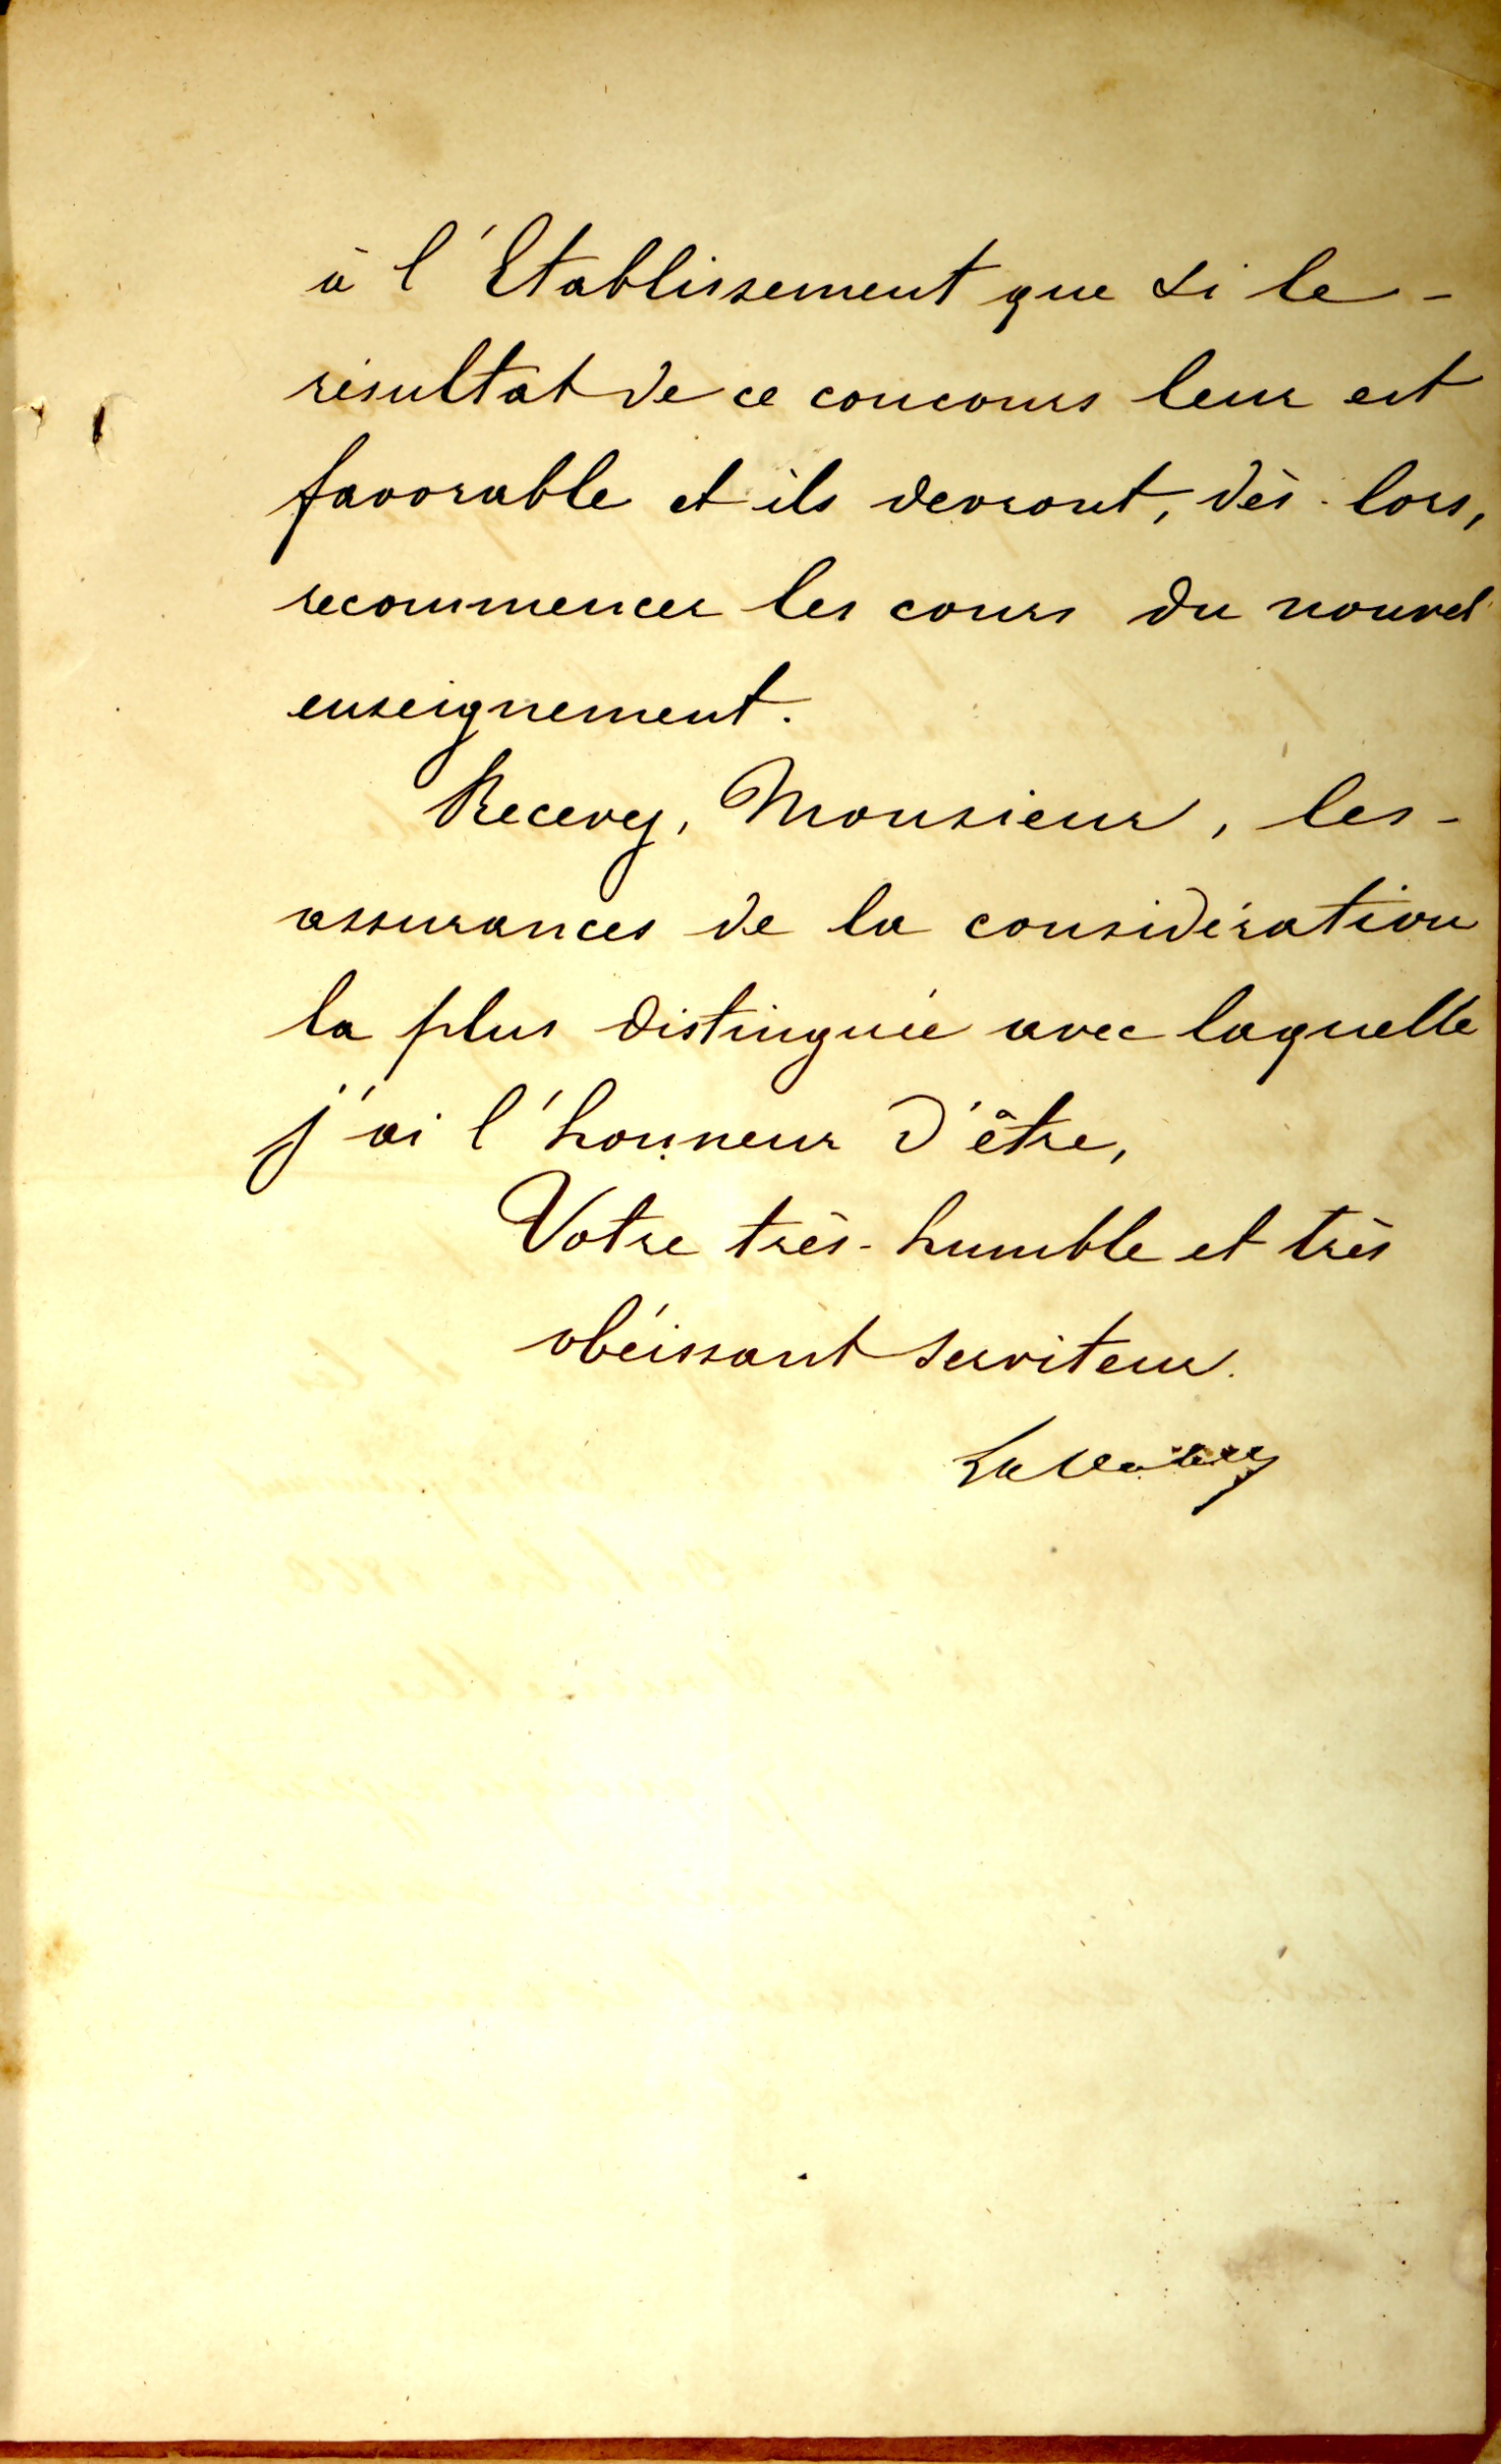 à l'Etablissement que si le -
résultat de ce concours leur est
favorable et ils devront, dès-lors,
recommencer les cours du nouvel
enseignement.
Recevez, Monsieur, les -
assurances de la considération
la plus distinguée avec laquelle
j'ai l'honneur d'être,
Votre très-humble et très
obéissant serviteur.